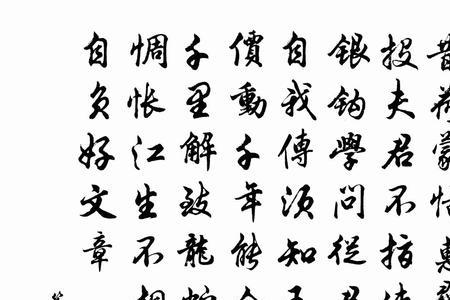 昔荷蒙恬惠
投夫君不指
银鈎學問從
自我傳須知
價動千年能
千里解致龍
惆怅江生不
自负好文章